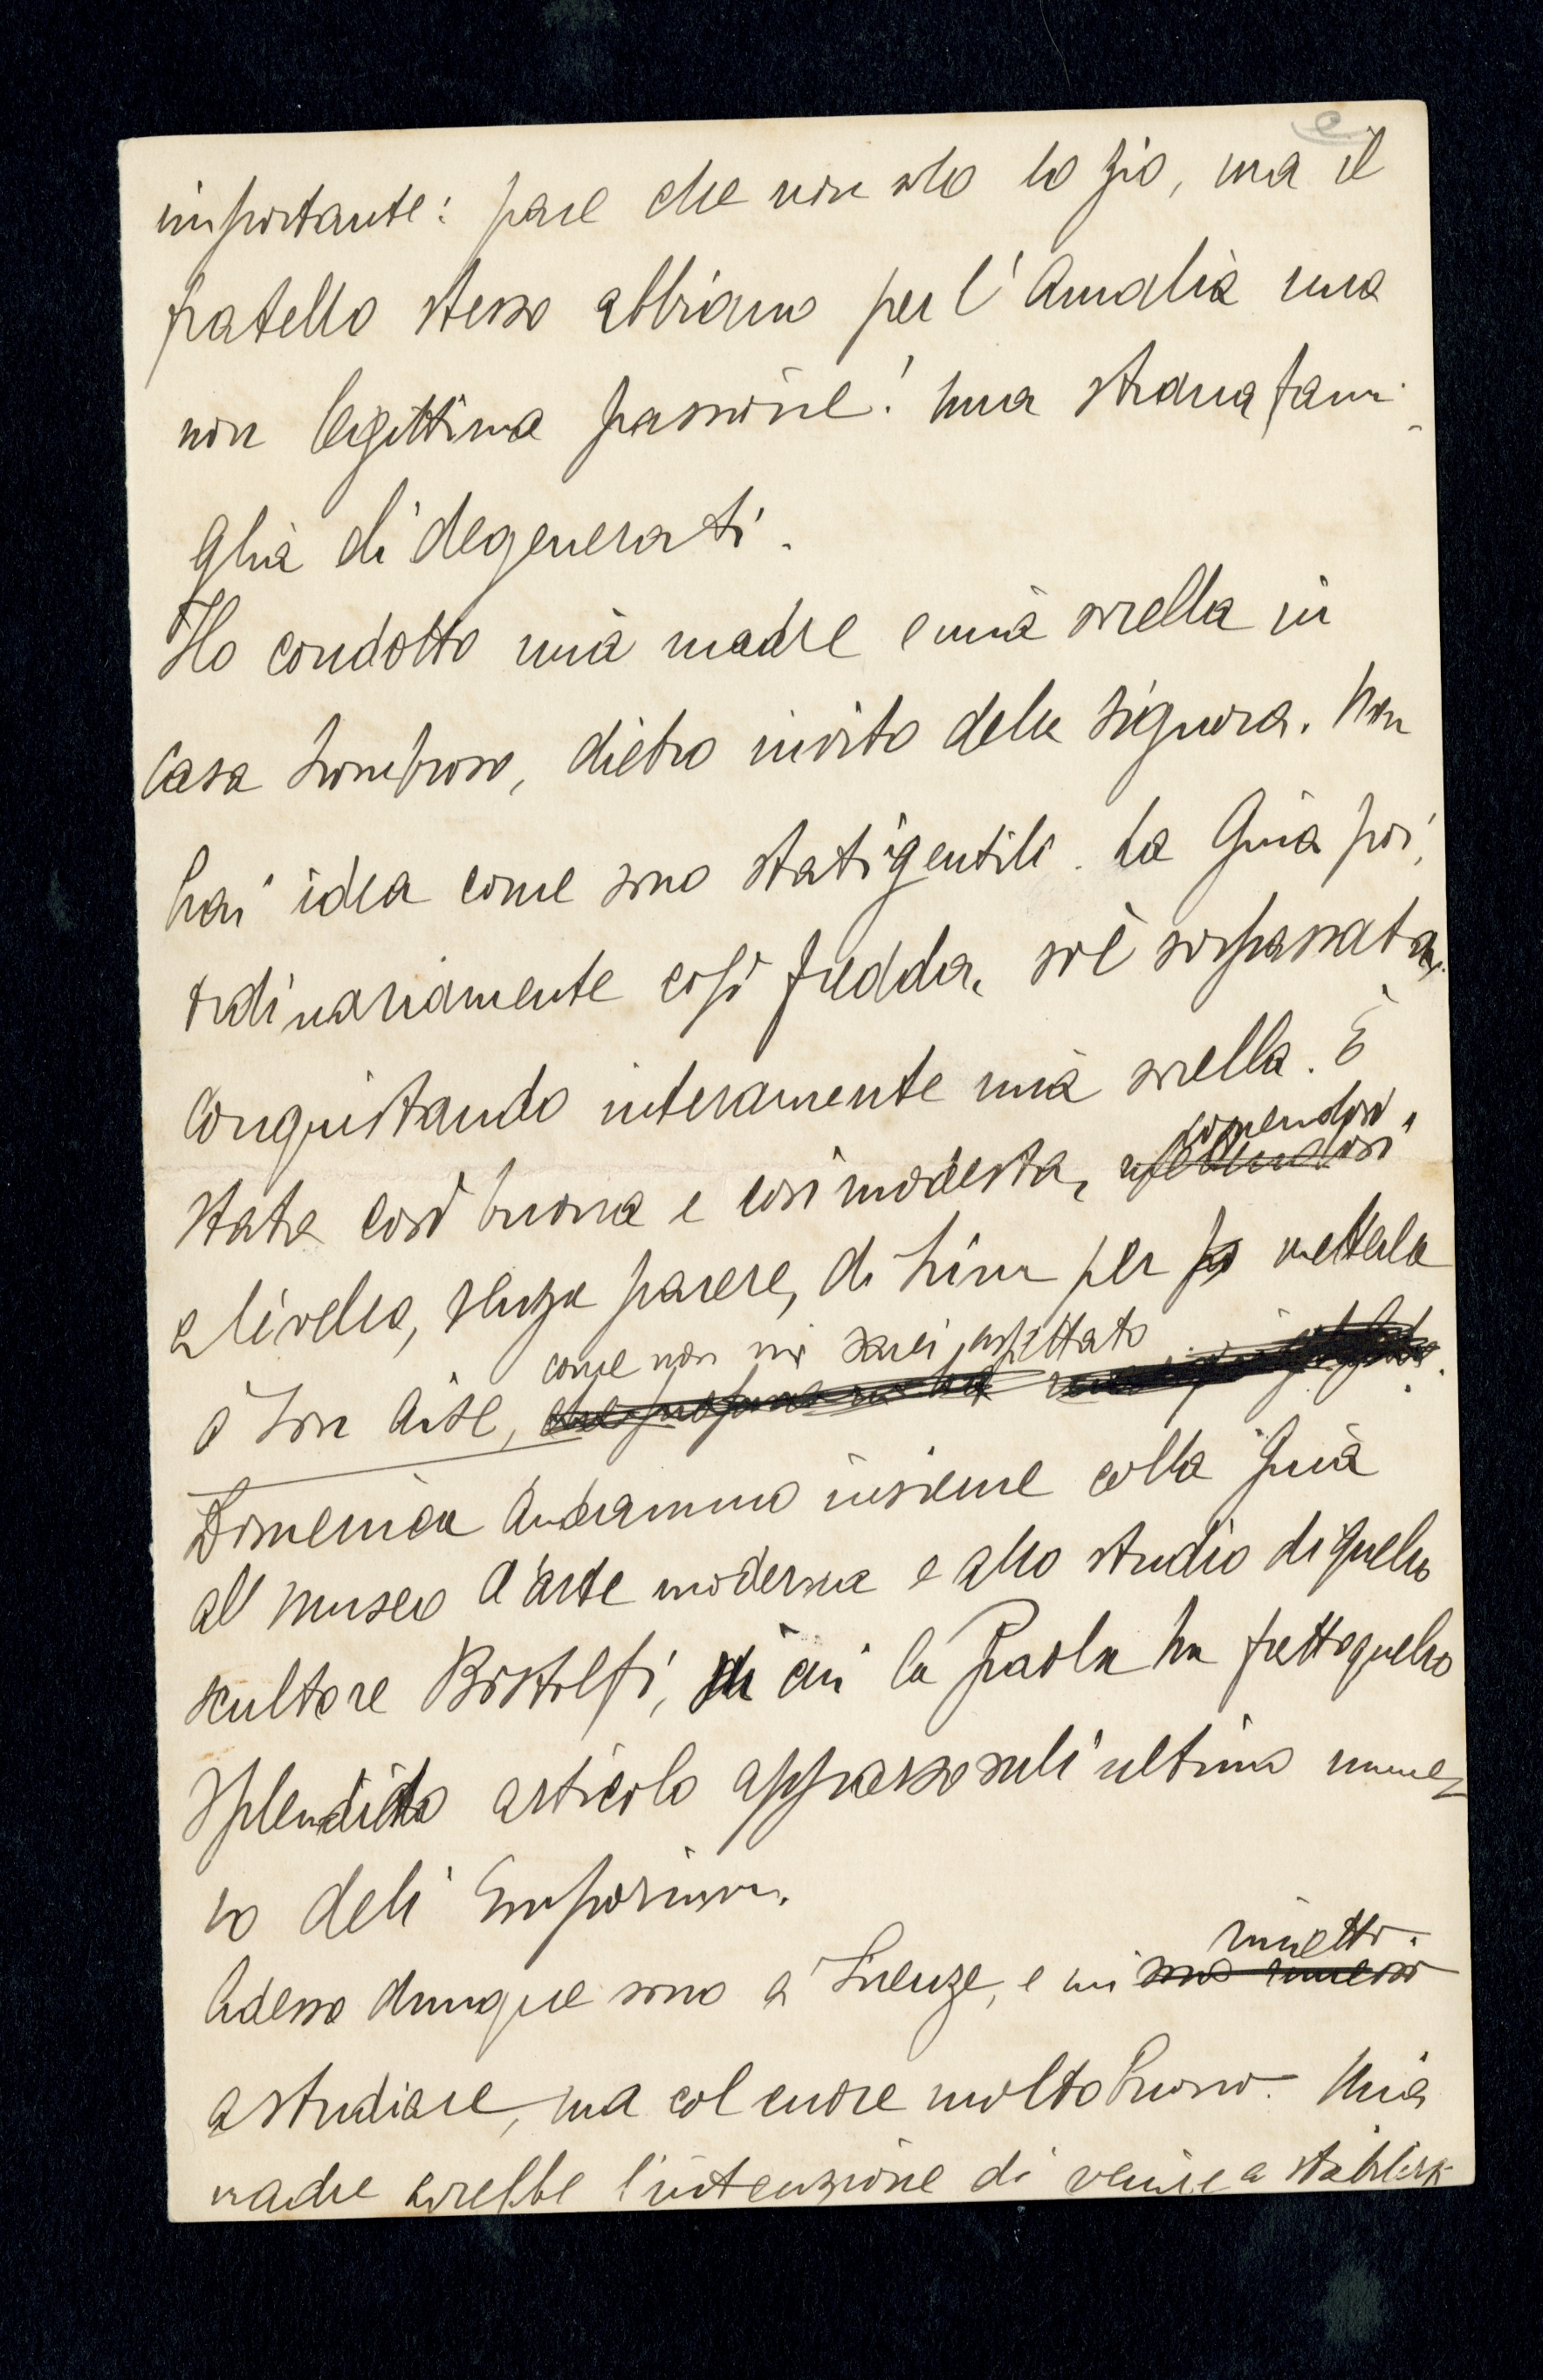 importante: pare che non solo lo zio, ma il
fratello stesso abbiano per l'Amalia una
non legittima passione! Una strana fami-
glia di degenerati.
Ho condotto mia madre e mia sorella in
casa Lombroso, dietro invito della Signora. Non
hai idea come sono stati gentili. La Gina poi,
ordinariamente così fredda, si è sorpassata,
conquistando interamente mia sorella. È
ponendosi
stata così buona e così modesta,
a livello, senza parere, di Lina per metterla
come non mi sarei aspettato
a son aise,
Domenica andammo insieme colla Gina
al museo d'arte moderna e allo studio di quello
scultore Bistolfi, di cui la Paola ha fatto quello
splendido articolo apparso sull'ultimo nume-
ro dell'Emporium.
rimetto
Adesso dunque sono a Firenze, e mi sono rimesso
a studiare, ma col cuore molto buono. Mia
madre avrebbe l'intenzione di venire a stabilirsi